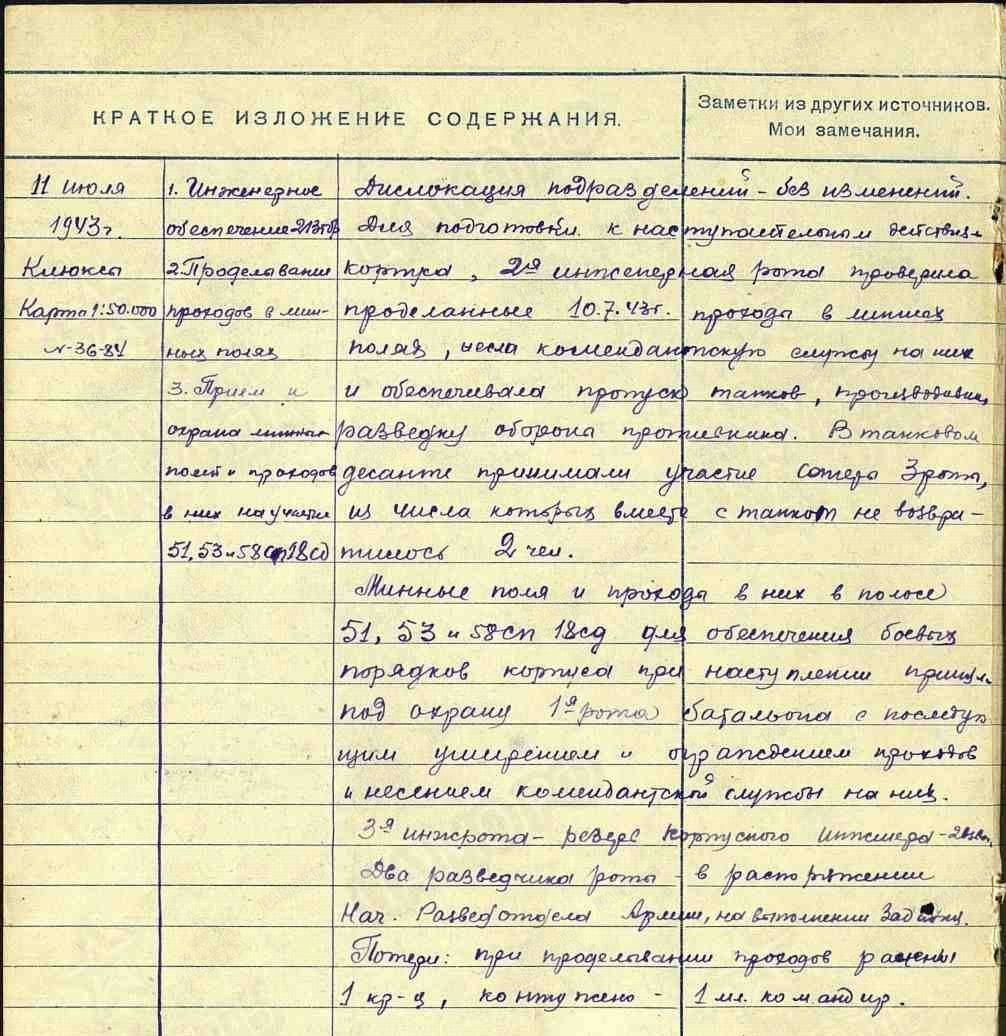 КРАТКОЕ ИЗЛОЖЕНИЕ СОДЕРЖАНИЯ.
Заметки из других источников.
Мои замечания.
11 июля
1943 г.
Клюксы
Карта 1:50.000
N-36-84
1. Инженерное
обеспечение
2. Проделывание
проходов в мин-
ных полях
3. Прием и
охрана минных
полей и проходов
в них на участке
51, 53 и 58 сп 18 сд
Дислокация подразделений - без изменений.
Для подготовки к наступательным действиям
корпуса, 2я инженерная рота проверила
проделанные 10.7.43г. проходы в минных
полях, несла комендантскую службу на них
и обеспечивала пропуск танков, производивших
разведку обороны противника. В танковом
десанте принимали участие саперы 3 роты,
из числа которых вместе с танком не возвра-
тилось 2 чел.
Минные поля и проходы в них в полосе
51, 53 и 58 сп 18 сд для обеспечения боевых
порядков корпуса при наступлении
под охрану 1я рота батальона с последую
щим уширением и ограждением проходов
и несением комендантской службы на них.
3я инжрота - резерв корпусного инженера
Два разведчика роты - в распоряжении
Нач. Разведотдела Армии, на выполнении
Потери: при проделывании проходов ранены
1 кр-ц, контужено - 1 мл. командир.